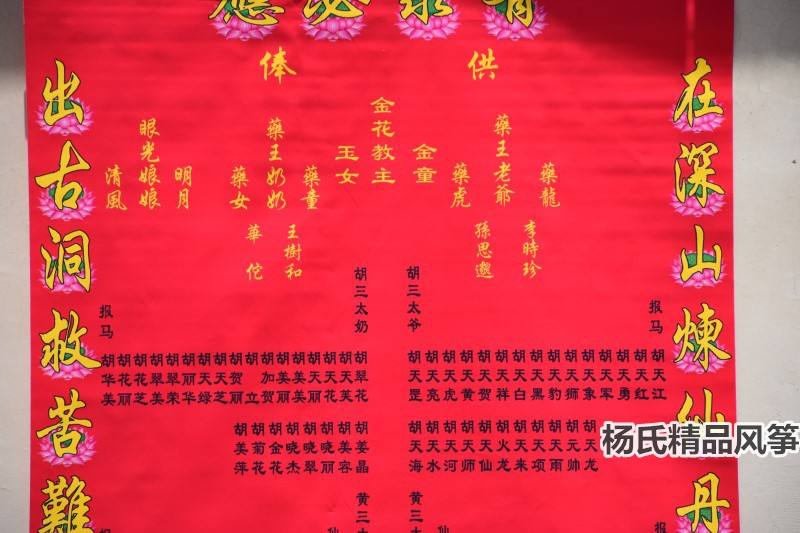 應必求有
在深山煉仙丹
出古洞救苦難
供
俸
藥龍
李時珍
藥王老爺
孫思邈
藥虎
金童
金花教主
玉女
藥童
王樹和
藥王奶奶
華佗
藥女
明月
眼光娘娘
清風
报马
胡三太爷
胡三太奶
报马
胡天江
胡天红
胡天勇
胡天军
胡天象
胡天师
胡天豹
胡天黑
胡天白
胡天祥
胡天贺
胡天黄
胡天虎
胡天亮
胡天罡
胡翠花
胡天芙
胡天花
胡天丽
胡美美
胡美丽
胡加贺
胡立
胡贺丽
胡天芝
胡天绿
胡丽华
胡翠荣
胡翠美
胡花芝
胡花丽
胡华美
胡天龙
胡元帅
胡天雨
胡天项
胡天来
胡火龙
胡天仙
胡天师
胡天河
胡天水
胡天海
胡姜晶
胡美容
胡晓丽
胡晓翠
胡晓杰
胡金花
胡菊花
胡美萍
黄三
黄三
报
仙
仙
报
杨氏精品风筝